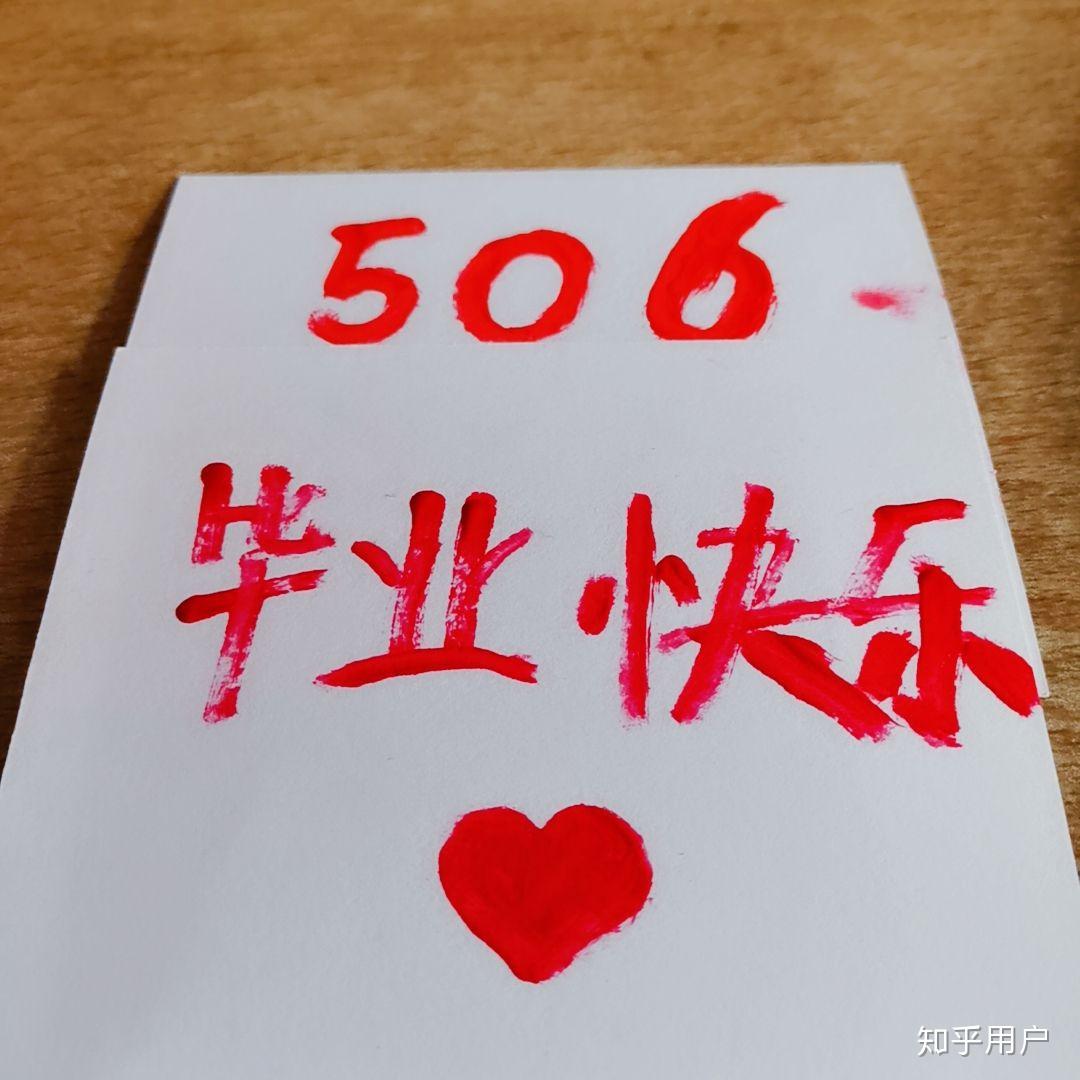 506
毕业快乐
知乎用户